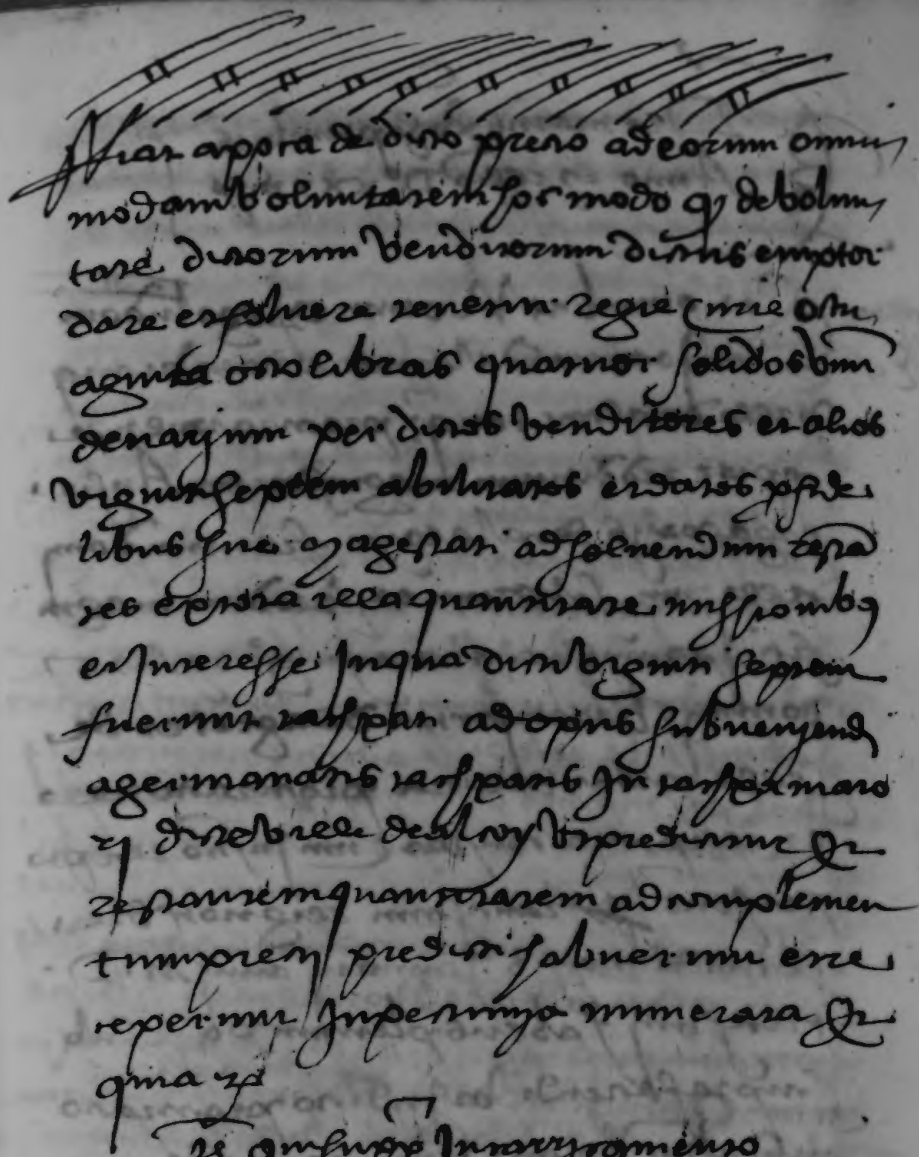 Fiat apoca de dicto precio ad eorum omni
modam voluntatem hoc modo q de volun
tate dictorum venditorum dictus emptor
dare et solvere tenetur regie curie octu
aginta octo libras quatuor solidos unum
denarium per dictos venditores et alios
viginti septem abilitatos et datos p fide
libus sue magestati ad solvendum
res ex tota illa quantitate missionibus
et interesse in qua dicti viginti septem
fuerunt tatxati ad opus subveniend
agermanatis tatxatis in tatxa
dicte ville de alcoy ut predicitur Et
restantem quantitatem ad complemen
tum precii predicti habuerunt et re
ceperunt in pecunia numerata Et
quia r